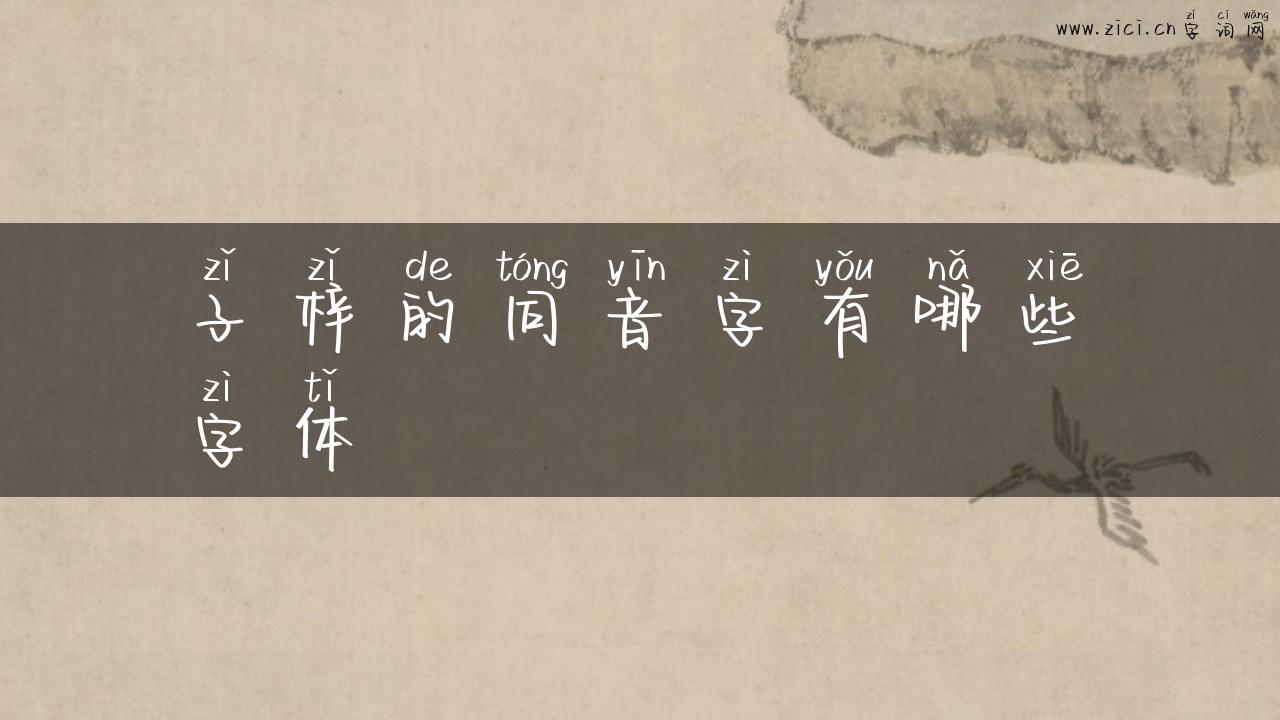 zì cí wǎng
www.zici.cn 字词网
zǐ zǐ de tóng yīn zì yǒu nǎ xiē
子梓的同音字有哪些
zì tǐ
字体